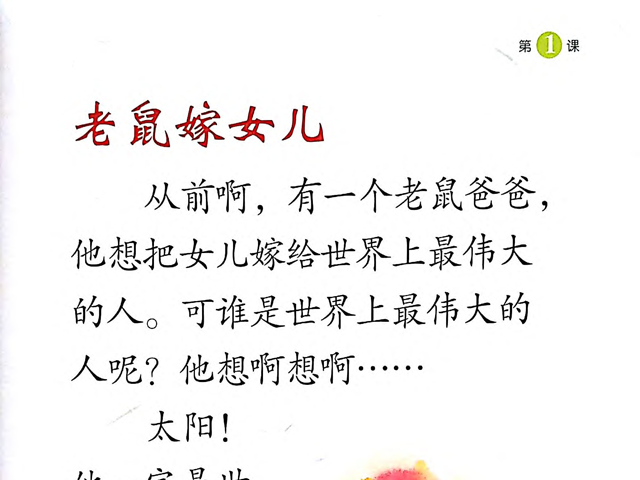 第1课
老鼠嫁女儿
从前啊，有一个老鼠爸爸，
他想把女儿嫁给世界上最伟大
的人。可谁是世界上最伟大的
人呢？他想啊想啊……
太阳！